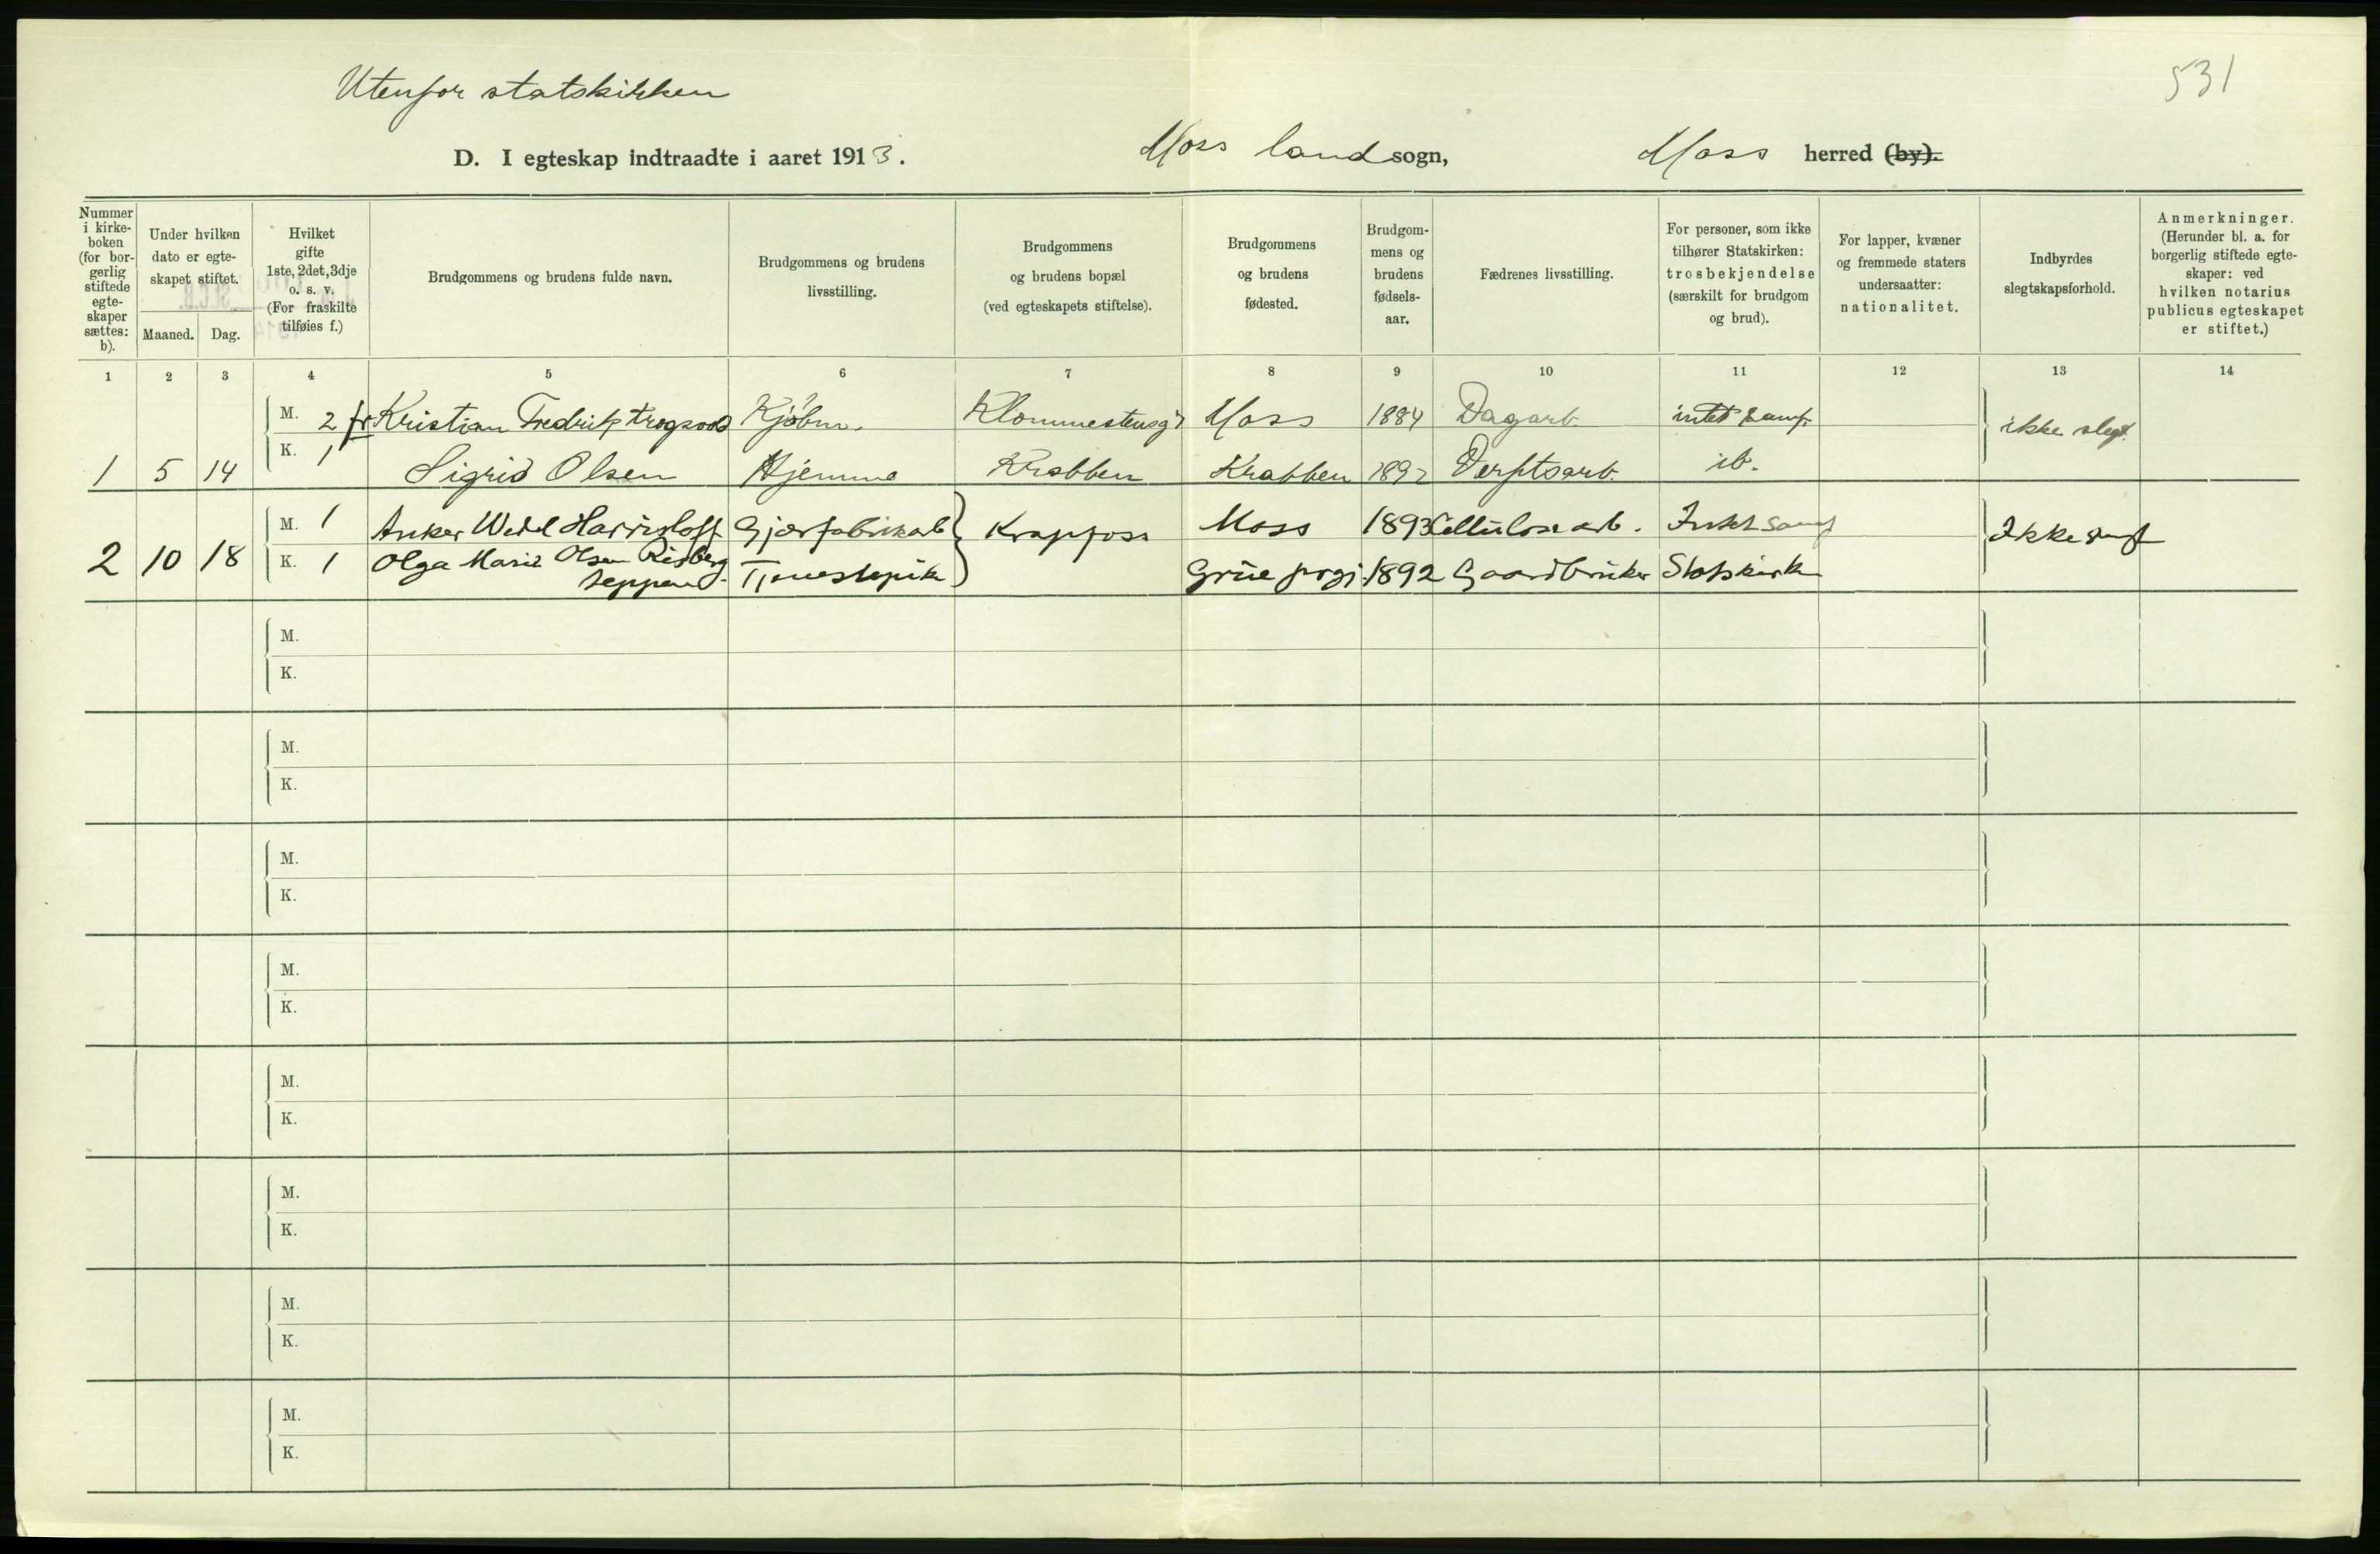 Utenfor statskirken
531
D. I egteskap indtraadte i aaret 1913. Moss landsogn, Moss herred (by).
Nummer i kirkeboken (for borgerlig stiftede egteskaper sættes: b).
Under hvilken dato er egteskapet stiftet.
Maaned. Dag.
Hvilket gifte 1ste, 2det, 3dje o. s. v. (For fraskilte tilføies f.)
Brudgommens og brudens fulde navn.
Brudgommens og brudens livsstilling.
Brudgommens og brudens bopæl (ved egteskapets stiftelse).
Brudgommens og brudens fødested.
Brudgommens og brudens fødselsaar.
Fædrenes livsstilling.
For personer, som ikke tilhører Statskirken: trosbekjendelse (særskilt for brudgom og brud).
For lapper, kvæner og fremmede staters undersaatter: nationalitet.
Indbyrdes slegtskapsforhold.
Anmerkninger. (Herunder bl. a. for borgerlig stiftede egteskaper: ved hvilken notarius publicus egteskapet er stiftet.)
1 2 3 4 5 6 7 8 9 10 11 12 13 14
M. 2 fr Kristian Fredrik Kjøbm. Moss 1884 Dagarb. intet samf. ikke slegt.
1 5 14 K. 1 Sigrid Olsen Hjemme Krabben Krabben 1892 Verftsarb. ib.
M. 1 Anker Wedel Gjærfabrikarb Krapfoss Moss 1893 Cellulosearb. Intet Samf Ikke
2 10 18 K. 1 Olga Marie Olsen Risberg Tjenestepike Grue prgj. 1892 Gaardbruker Statskirk
Seppen
M.
K.
M.
K.
M.
K.
M.
K.
M.
K.
M.
K.
M.
K.
M.
K.